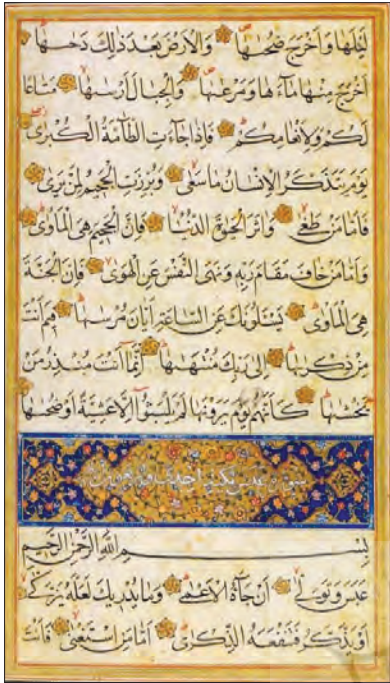 لَيْلَهَا وَأَخْرَجَ ضُحَاهَا وَالْأَرْضَ بَعْدَ ذَٰلِكَ دَحَاهَا
أَخْرَجَ مِنْهَا مَاءَهَا وَمَرْعَاهَا وَالْجِبَالَ أَرْسَاهَا مَتَاعًا
لَكُمْ وَلِأَنْعَامِكُمْ فَإِذَا جَاءَتِ الطَّامَّةُ الْكُبْرَىٰ
يَوْمَ يَتَذَكَّرُ الْإِنْسَانُ مَا سَعَىٰ وَبُرِّزَتِ الْجَحِيمُ لِمَنْ يَرَىٰ
فَأَمَّا مَنْ طَغَىٰ وَآثَرَ الْحَيٰوةَ الدُّنْيَا فَإِنَّ الْجَحِيمَ هِيَ الْمَأْوَىٰ
وَأَمَّا مَنْ خَافَ مَقَامَ رَبِّهِ وَنَهَى النَّفْسَ عَنِ الْهَوَىٰ فَإِنَّ الْجَنَّةَ
هِيَ الْمَأْوَىٰ يَسْأَلُونَكَ عَنِ السَّاعَةِ أَيَّانَ مُرْسَاهَا فِيمَ أَنْتَ
مِنْ ذِكْرَاهَا إِلَىٰ رَبِّكَ مُنْتَهَاهَا إِنَّمَا أَنْتَ مُنْذِرُ مَنْ
يَخْشَاهَا كَأَنَّهُمْ يَوْمَ يَرَوْنَهَا لَمْ يَلْبَثُوا إِلَّا عَشِيَّةً أَوْ ضُحَاهَا
سورة عبس مكية
بِسْمِ اللهِ الرَّحْمٰنِ الرَّحِيمِ
عَبَسَ وَتَوَلَّىٰ أَنْ جَاءَهُ الْأَعْمَىٰ وَمَا يُدْرِيكَ لَعَلَّهُ يَزَّكَّىٰ
أَوْ يَذَّكَّرُ فَتَنْفَعَهُ الذِّكْرَىٰ أَمَّا مَنِ اسْتَغْنَىٰ فَأَنْتَ